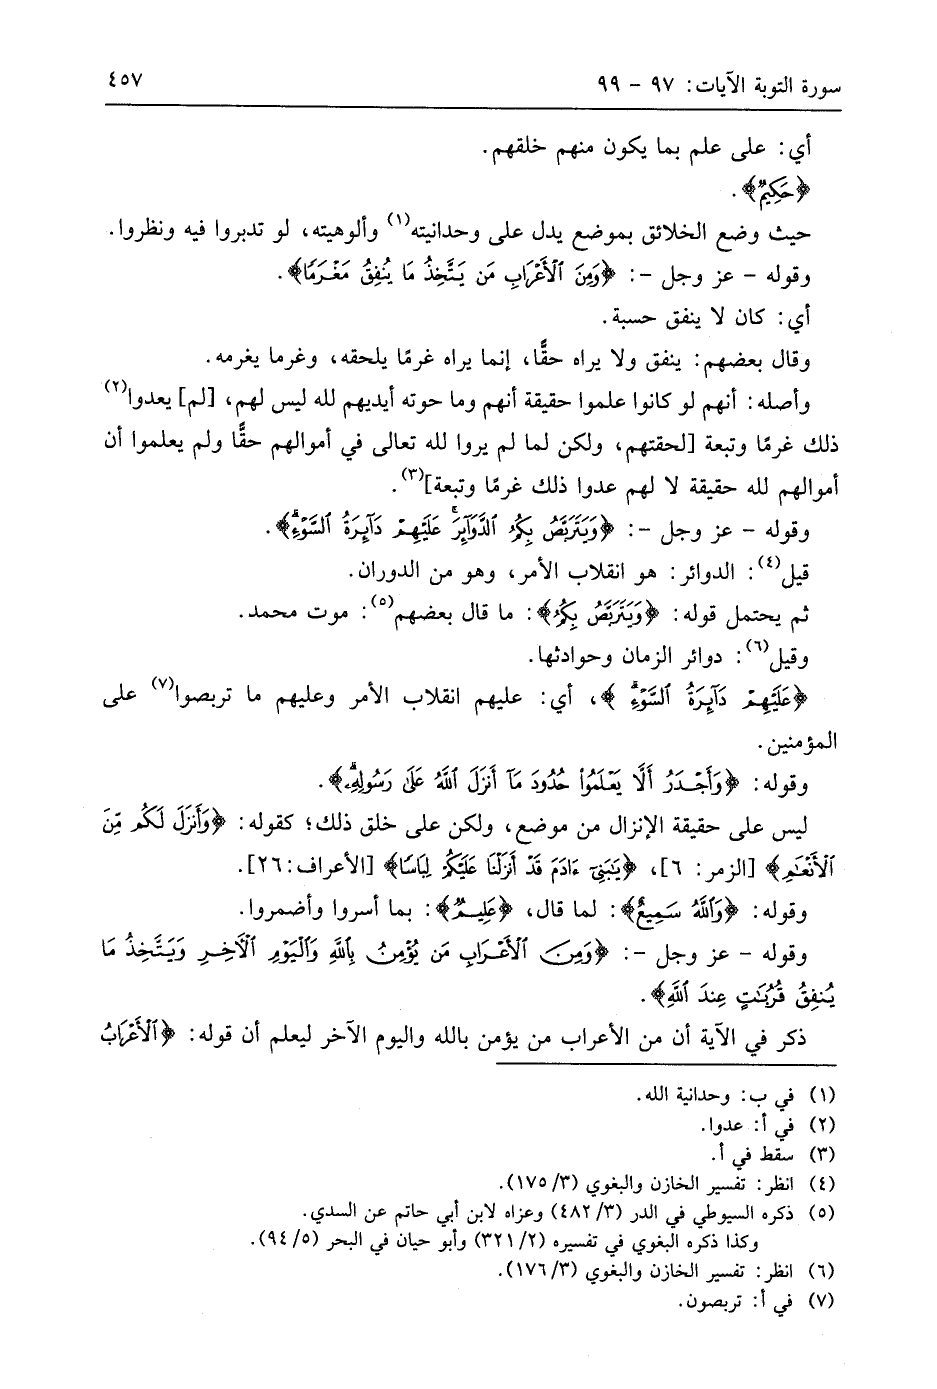 سورة التوبة الآيات: ٩٧ - ٩٩
٤٥٧
أي: على علم بما يكون منهم خلقهم.
﴿حَكِيمٌ﴾.
حيث وضع الخلائق بموضع يدل على وحدانيته(١) وألوهيته، لو تدبروا فيه ونظروا.
وقوله - عز وجل -: ﴿وَمِنَ ٱلْأَعْرَابِ مَن يَتَّخِذُ مَا يُنفِقُ مَغْرَمًا﴾.
أي: كان لا ينفق حسبة.
وقال بعضهم: ينفق ولا يراه حقًّا، إنما يراه غرمًا يلحقه، وغرما يغرمه.
وأصله: أنهم لو كانوا علموا حقيقة أنهم وما حوته أيديهم لله ليس لهم، [لم] يعدوا(٢)
ذلك غرمًا وتبعة [لحقتهم، ولكن لما لم يروا لله تعالى في أموالهم حقًّا ولم يعلموا أن
أموالهم لله حقيقة لا لهم عدوا ذلك غرمًا وتبعة](٣).
وقوله - عز وجل -: ﴿وَيَتَرَبَّصُ بِكُمُ ٱلدَّوَآئِرَ عَلَيْهِمْ دَآئِرَةُ ٱلسَّوْءِ﴾.
قيل(٤): الدوائر: هو انقلاب الأمر، وهو من الدوران.
ثم يحتمل قوله: ﴿وَيَتَرَبَّصُ بِكُمُ﴾: ما قال بعضهم(٥): موت محمد.
وقيل(٦): دوائر الزمان وحوادثها.
﴿عَلَيْهِمْ دَآئِرَةُ ٱلسَّوْءِ﴾، أي: عليهم انقلاب الأمر وعليهم ما تربصوا(٧) على
المؤمنين.
وقوله: ﴿وَأَجْدَرُ أَلَّا يَعْلَمُوا۟ حُدُودَ مَآ أَنزَلَ ٱللَّهُ عَلَىٰ رَسُولِهِۦ﴾.
ليس على حقيقة الإنزال من موضع، ولكن على خلق ذلك؛ كقوله: ﴿وَأَنزَلَ لَكُم مِّنَ
ٱلْأَنْعَٰمِ﴾ [الزمر: ٦]، ﴿يَٰبَنِىٓ ءَادَمَ قَدْ أَنزَلْنَا عَلَيْكُمْ لِبَاسًا﴾ [الأعراف: ٢٦].
وقوله: ﴿وَٱللَّهُ سَمِيعٌ﴾: لما قال، ﴿عَلِيمٌ﴾: بما أسروا وأضمروا.
وقوله - عز وجل -: ﴿وَمِنَ ٱلْأَعْرَابِ مَن يُؤْمِنُ بِٱللَّهِ وَٱلْيَوْمِ ٱلْءَاخِرِ وَيَتَّخِذُ مَا
يُنفِقُ قُرُبَٰتٍ عِندَ ٱللَّهِ﴾.
ذكر في الآية أن من الأعراب من يؤمن بالله واليوم الآخر ليعلم أن قوله: ﴿ٱلْأَعْرَابُ
(١) في ب: وحدانية الله.
(٢) في أ: عدوا.
(٣) سقط في أ.
(٤) انظر: تفسير الخازن والبغوي (٣/ ١٧٥).
(٥) ذكره السيوطي في الدر (٣/ ٤٨٢) وعزاه لابن أبي حاتم عن السدي.
وكذا ذكره البغوي في تفسيره (٢/ ٣٢١) وأبو حيان في البحر (٥/ ٩٤).
(٦) انظر: تفسير الخازن والبغوي (٣/ ١٧٦).
(٧) في أ: تربصون.